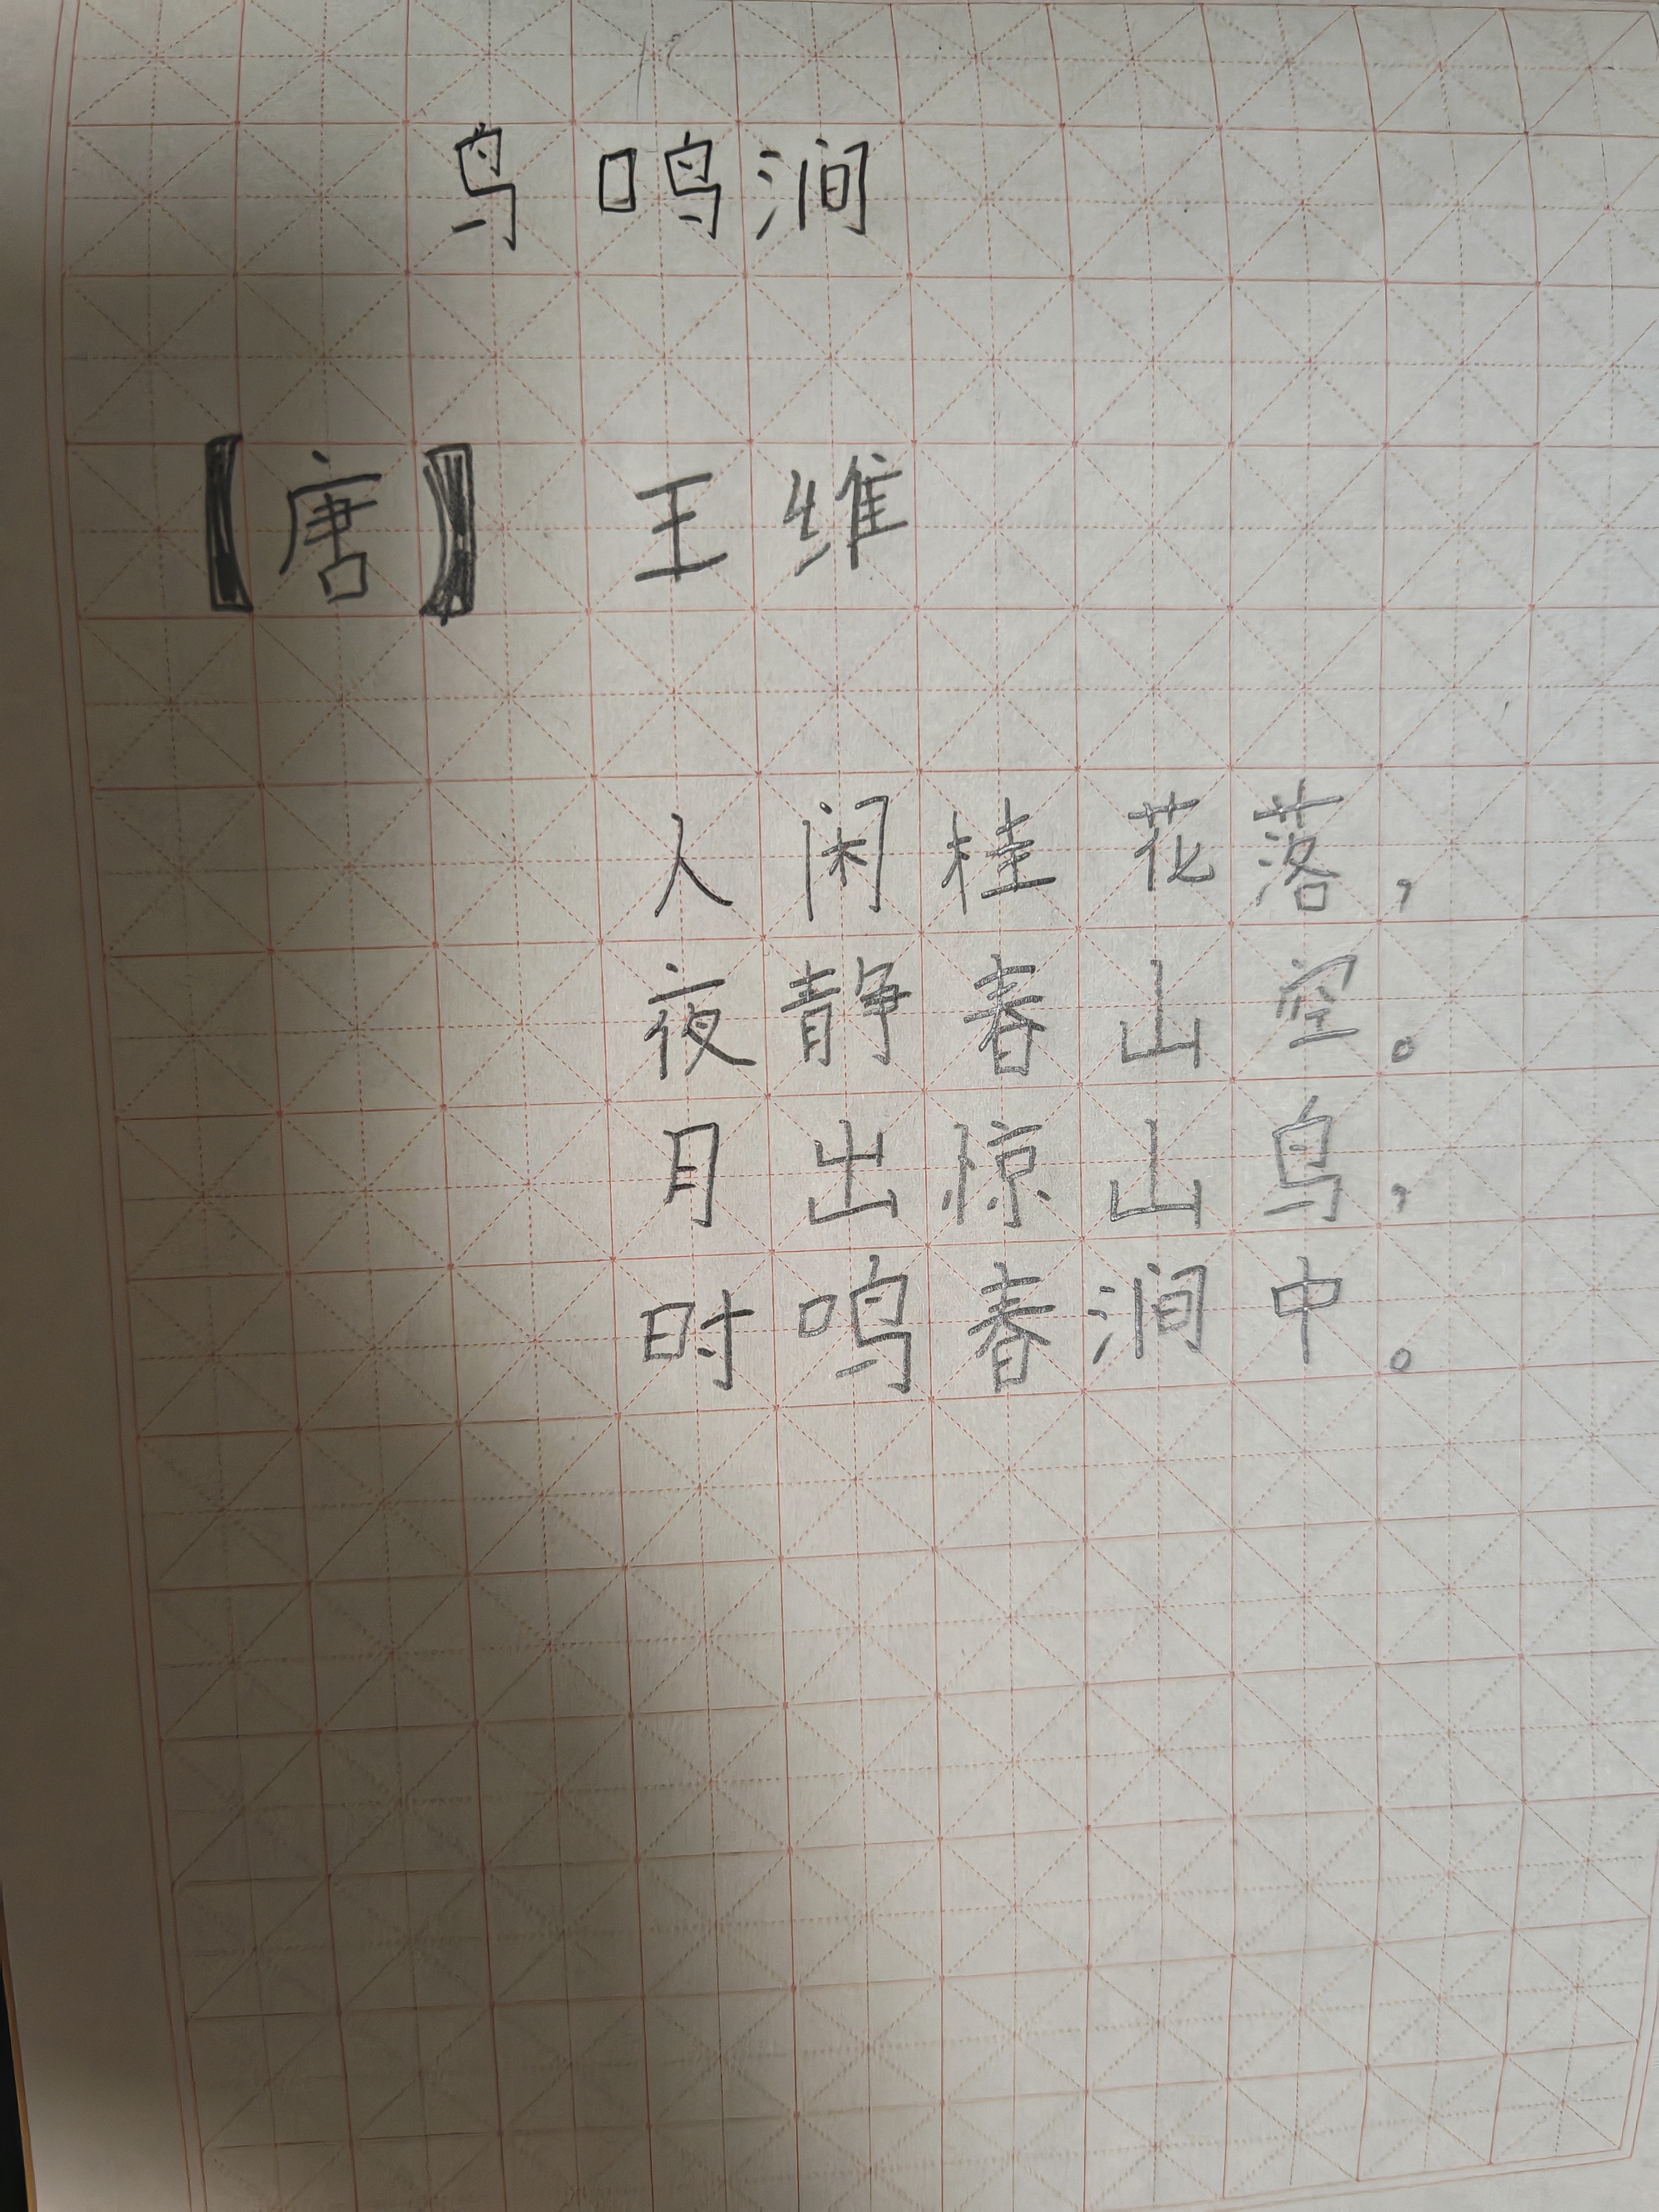 鸟鸣涧
【唐】 王维
人闲桂花落，
夜静春山空。
月出惊山鸟，
时鸣春涧中。